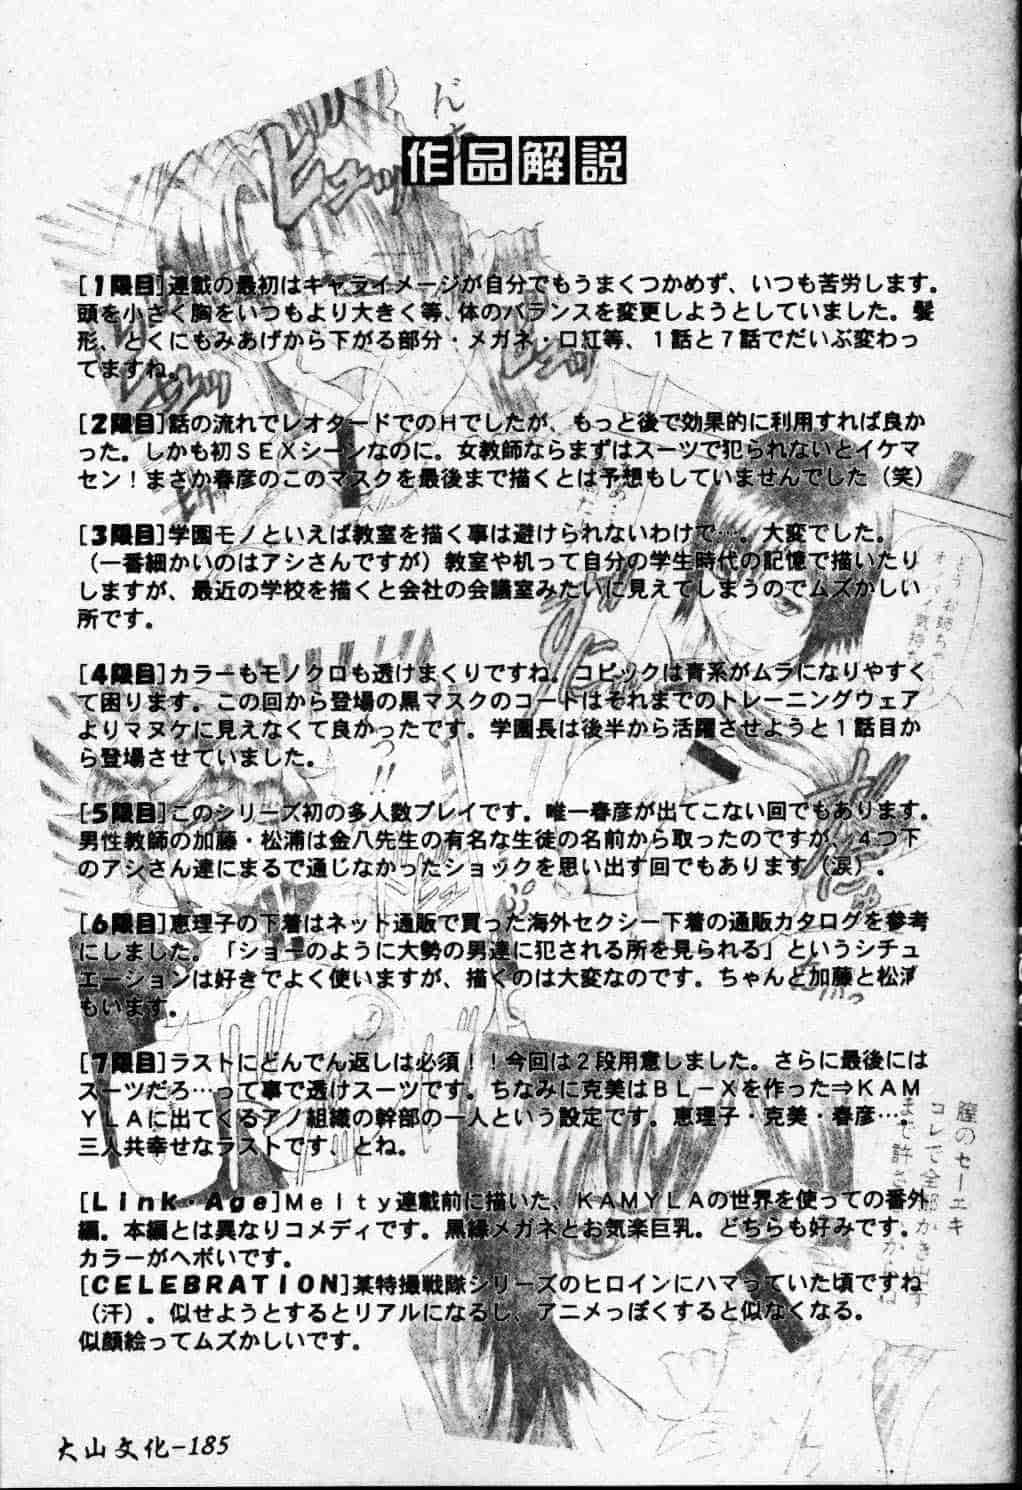 作品解説
[1限目]連載の最初はキャライメージが自分でもうまくつかめず、いつも苦労します。
頭を小さく胸をいつもより大きく等、体のバランスを変更しようとしていました。髪
形、とくにもみあげから下がる部分・メガネ・口紅等、1話と7話でだいぶ変わっ
てますね。
[2限目]話の流れでレオタードでのHでしたが、もっと後で効果的に利用すれば良か
った。しかも初SEXシーンなのに。女教師ならまずはスーツで犯られないとイケマ
セン!まさか春彦のこのマスクを最後まで描くとは予想もしていませんでした(笑)
[3限目]学園モノといえば教室を描く事は避けられないわけで…。大変でした。
(一番細かいのはアシさんですが)教室や机って自分の学生時代の記憶で描いたり
しますが、最近の学校を描くと会社の会議室みたいに見えてしまうのでムズかしい
所です。
[4限目]カラーもモノクロも透けまくりですね。コピックは青系がムラになりやすく
て困ります。この回から登場の黒マスクのコードはそれまでのトレーニングウェア
よりマヌケに見えなくて良かったです。学園長は後半から活躍させようと1話目か
ら登場させていました。
[5限目]このシリーズ初の多人数プレイです。唯一春彦が出てこない回でもあります。
男性教師の加藤・松浦は金八先生の有名な生徒の名前から取ったのですが、4つ下
のアシさん達にまるで通じなかったショックを思い出す回でもあります(涙)。
[6限目]恵理子の下着はネット通販で買った海外セクシー下着の通販カタログを参考
にしました。「ショーのように大勢の男達に犯される所を見られる」というシチュ
エーションは好きでよく使いますが、描くのは大変なのです。ちゃんと加藤と松浦
もいます。
[7限目]ラストにどんでん返しは必須!!今回は2段用意しました。さらに最後には
スーツだろ…って事で透けスーツです。ちなみに克美はBL-Xを作った⇒KAM
YLAに出てくるアノ組織の幹部の一人という設定です。恵理子・克美・春彦…。
三人共幸せなラストです、とね。
[Link・Age]Melty連載前に描いた、KAMYLAの世界を使っての番外
編。本編とは異なりコメディです。黒縁メガネとお気楽巨乳。どちらも好みです。
カラーがヘボいです。
[CELEBRATION]某特撮戦隊シリーズのヒロインにハマっていた頃ですね
(汗)。似せようとするとリアルになるし、アニメっぽくすると似なくなる。
似顔絵ってムズかしいです。
大山文化-185